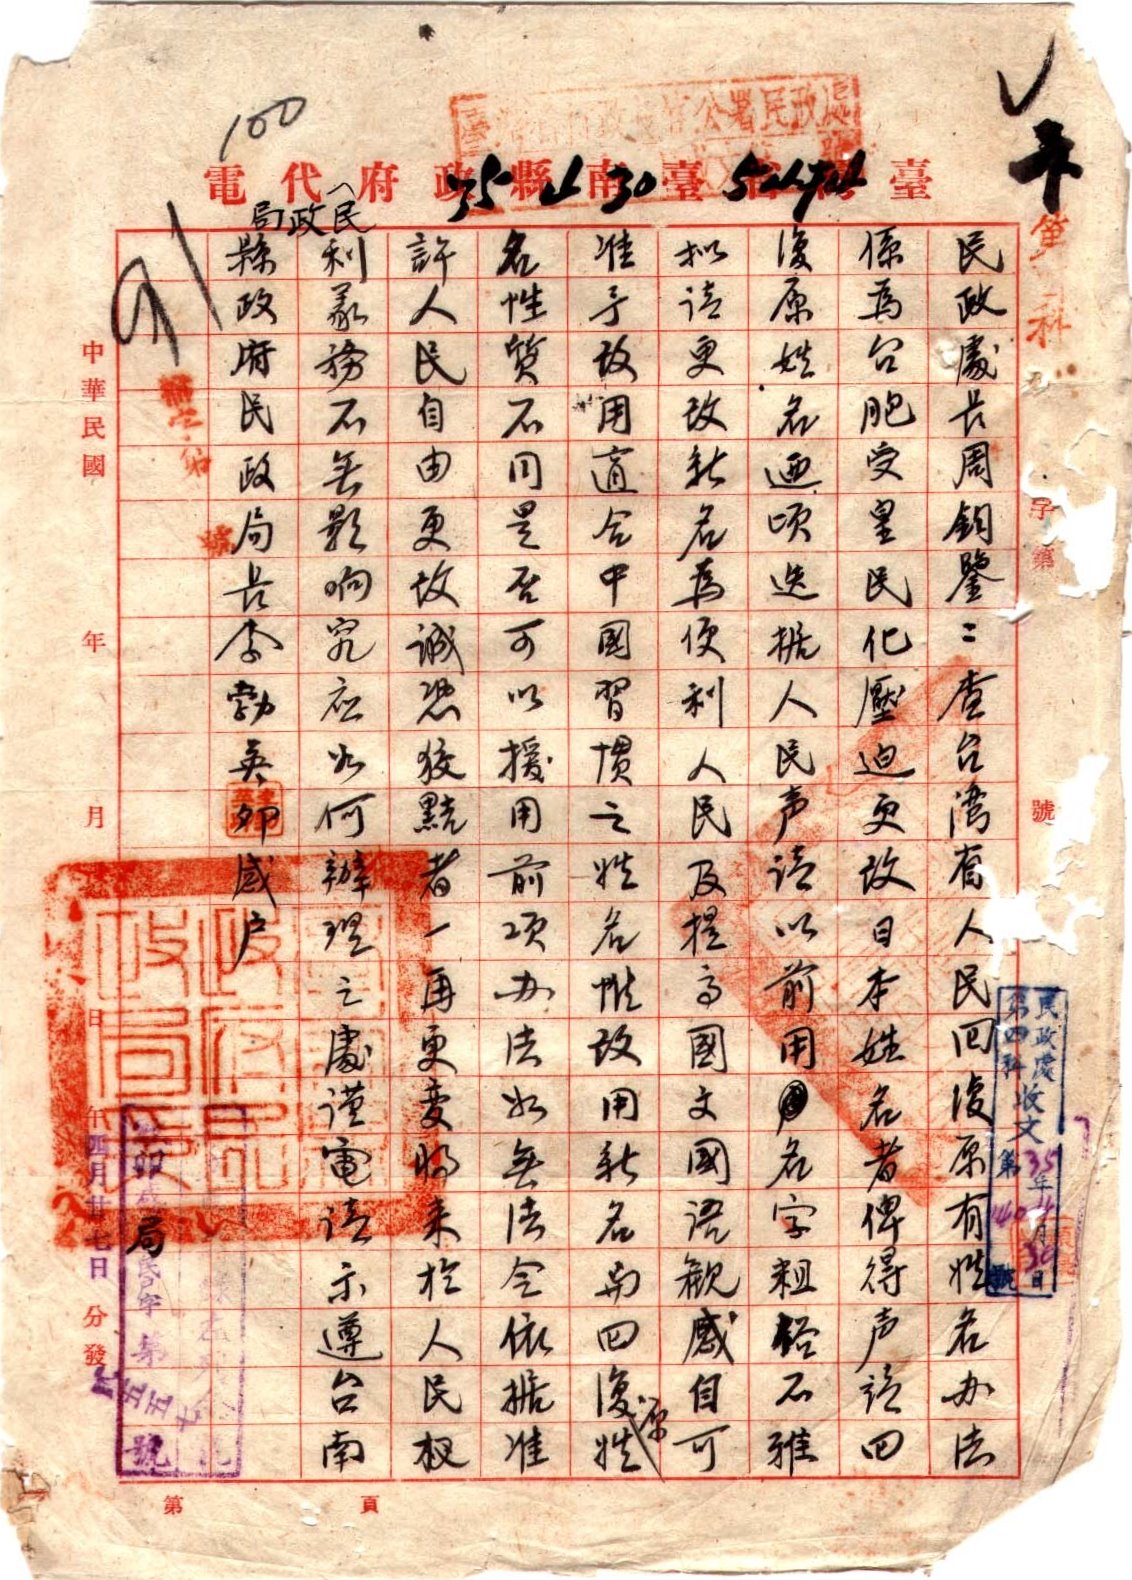 100
臺灣省臺南縣政府代電
（民政局
35 4 30
91
民政處長周鈞鑒：查台湾省人民回復原有姓名办法
係為台胞受皇民化壓迫更改日本姓名者俾得声請回
復原姓名迺頃迭据人民声請以前用名字粗俗不雅
拟請更改新名為便利人民及提高國文國語觀感自可
准予改用適合中國習慣之姓名惟改用新名与回復原姓
名性質不同是否可以援用前項办法如無法令依据准
許人民自由更改誠恐狡黠者一再更变將来於人民权
利義務不無影响究应如何辦理之處謹電請示遵台南
縣政府民政局長李勃英卯感户
中華民國 年 月 日
年四月廿七日 分發
字第 號
民政處
第四科
收文
35年4月30日
第 號
民字第 號
第 頁